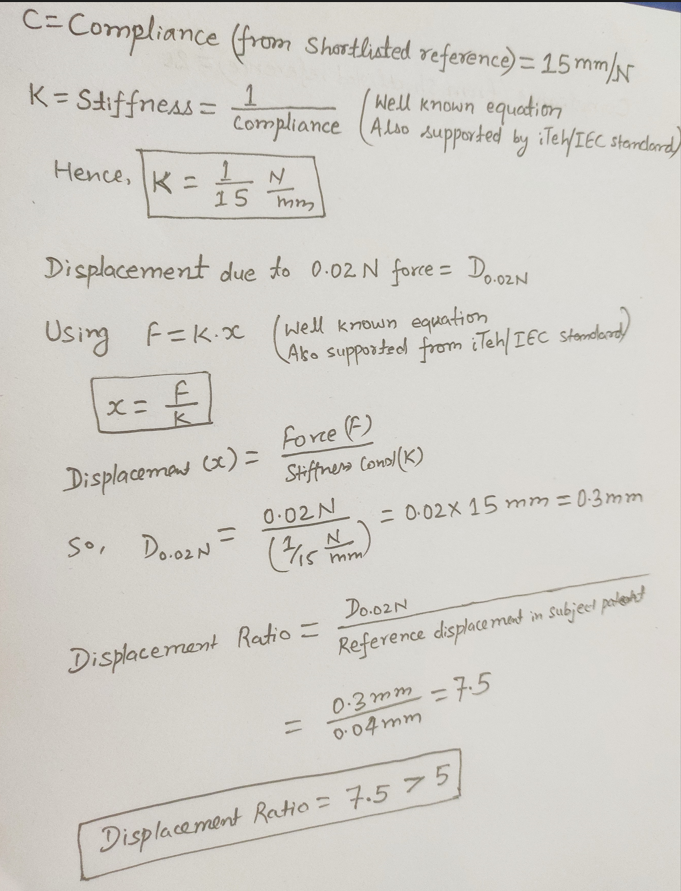 C = Compliance (from Shortlisted reference) = 15 mm/N
K = Stiffness = 1 / Compliance (Well known equation
Also supported by iTeh/IEC standard)
Hence, K = 1/15 N/mm
Displacement due to 0.02 N force = D0.02N
Using F = K.x (Well known equation
Also supported from iTeh/IEC standard)
x = F/K
Displacement (x) = Force (F) / Stiffness (K)
So, D0.02N = 0.02 N / (1/15 N/mm) = 0.02 x 15 mm = 0.3 mm
Displacement Ratio = D0.02N / Reference displacement in subject patent
= 0.3 mm / 0.04 mm = 7.5
Displacement Ratio = 7.5 > 5